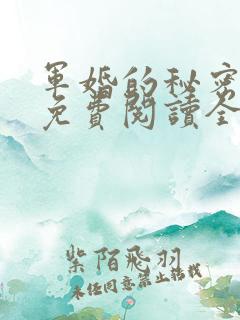 軍婚的秘密
免費閱讀全
紫陌飛羽
未經同意禁止轉載